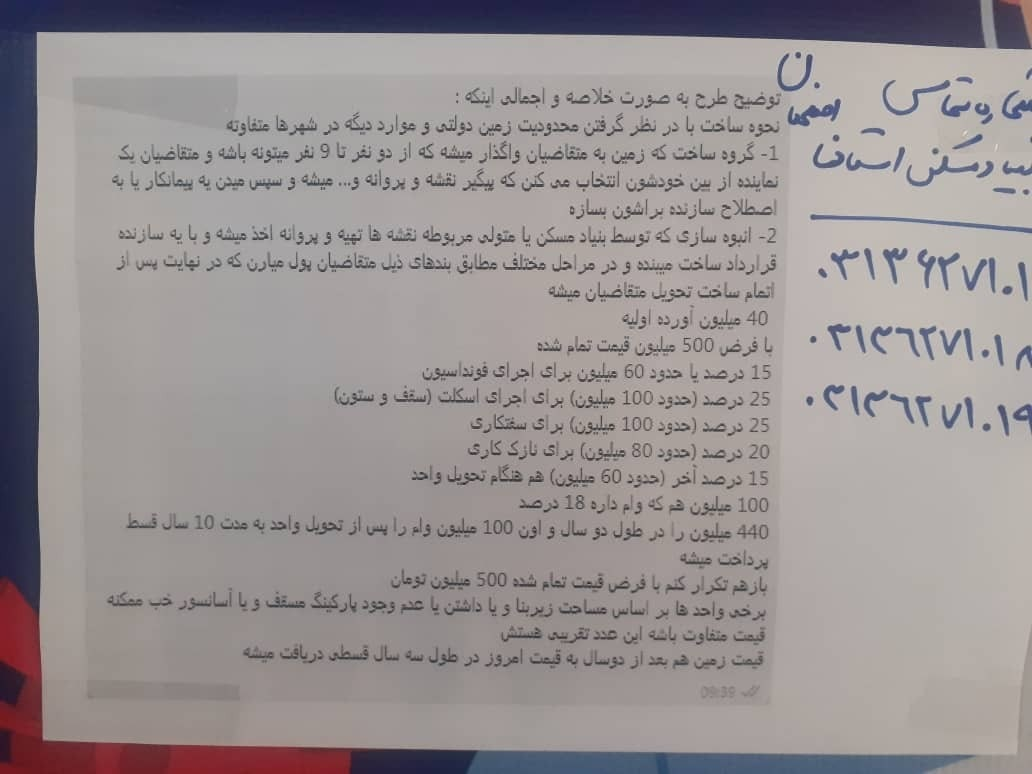 توضیح طرح به صورت خلاصه و اجمالی اینکه :
نحوه ساخت با در نظر گرفتن محدودیت زمین دولتی و موارد دیگه در شهرها متفاوته
1- گروه ساخت که زمین به متقاضیان واگذار میشه که از دو نفر تا 9 نفر میتونه باشه و متقاضیان یک
نماینده از بین خودشون انتخاب می کنن که پیگیر نقشه و پروانه و... میشه و سپس میدن یه پیمانکار یا به
اصطلاح سازنده براشون بسازه
2- انبوه سازی که توسط بنیاد مسکن یا متولی مربوطه نقشه ها تهیه و پروانه اخذ میشه و با یه سازنده
قرارداد ساخت میبنده و در مراحل مختلف مطابق بندهای ذیل متقاضیان پول میارن که در نهایت پس از
اتمام ساخت تحویل متقاضیان میشه
40 میلیون آورده اولیه
با فرض 500 میلیون قیمت تمام شده
15 درصد یا حدود 60 میلیون برای اجرای فونداسیون
25 درصد (حدود 100 میلیون) برای اجرای اسکلت (سقف و ستون)
25 درصد (حدود 100 میلیون) برای سفتکاری
20 درصد (حدود 80 میلیون) برای نازک کاری
15 درصد آخر (حدود 60 میلیون) هم هنگام تحویل واحد
100 میلیون هم که وام داره 18 درصد
440 میلیون را در طول دو سال و اون 100 میلیون وام را پس از تحویل واحد به مدت 10 سال قسط
پرداخت میشه
بازهم تکرار کنم با فرض قیمت تمام شده 500 میلیون تومان
برخی واحد ها بر اساس مساحت زیربنا و یا داشتن یا عدم وجود پارکینگ مسقف و یا آسانسور خب ممکنه
قیمت متفاوت باشه این عدد تقریبی هستش
قیمت زمین هم بعد از دوسال به قیمت امروز در طول سه سال قسطی دریافت میشه
09:39
تماس
اصفهان
مسکن استان
۰۳۱۳۶۲۷۱۰۱
۰۳۱۳۶۲۷۱۰۱۸
۰۳۱۳۶۲۷۱۰۱۹